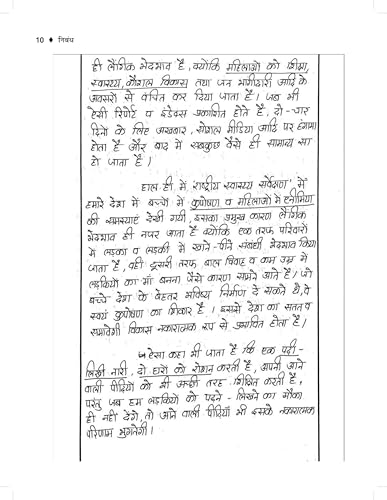 10 ♦ निबंध
ही लैंगिक भेदभाव है, क्योंकि महिलाओं को शिक्षा,
स्वास्थ्य, कौशल विकास तथा जन भागीदारी आदि के
अवसरों से वंचित कर दिया जाता है। जब भी
ऐसी रिपोर्ट व इंडेक्स प्रकाशित होते हैं, दो-चार
दिनों के लिए अखबार, सोशल मीडिया आदि पर हंगामा
होता है और बाद में सबकुछ वैसे ही सामान्य सा
हो जाता है।
हाल ही में राष्ट्रीय स्वास्थ्य सर्वेक्षण में
हमारे देश में बच्चों में कुपोषण व महिलाओं में एनीमिया
की समस्याएं देखी गयी, इसका प्रमुख कारण लैंगिक
भेदभाव ही नजर आता है क्योंकि एक तरफ परिवारों
में लड़का व लड़की में खाने-पीने संबंधी भेदभाव किया
जाता है, वहीं दूसरी तरफ बाल विवाह व कम उम्र में
लड़कियों का माँ बनना जैसे कारण सामने आते हैं। जो
बच्चे देश के बेहतर भविष्य निर्माण दे सकते हैं, वे
स्वयं कुपोषण का शिकार हैं। इससे देश का सतत व
समावेशी विकास नकारात्मक रूप से प्रभावित होता है।
ऐसा कहा भी जाता है कि एक पढ़ी-
लिखी नारी, दो घरों को रोशन करती है, अपनी आने
वाली पीढ़ियों को भी अच्छी तरह शिक्षित करती है,
परंतु जब हम लड़कियों को पढ़ने-लिखने का मौका
ही नहीं देंगे, तो आने वाली पीढ़ियाँ भी इसके नकारात्मक
परिणाम भुगतेगी।